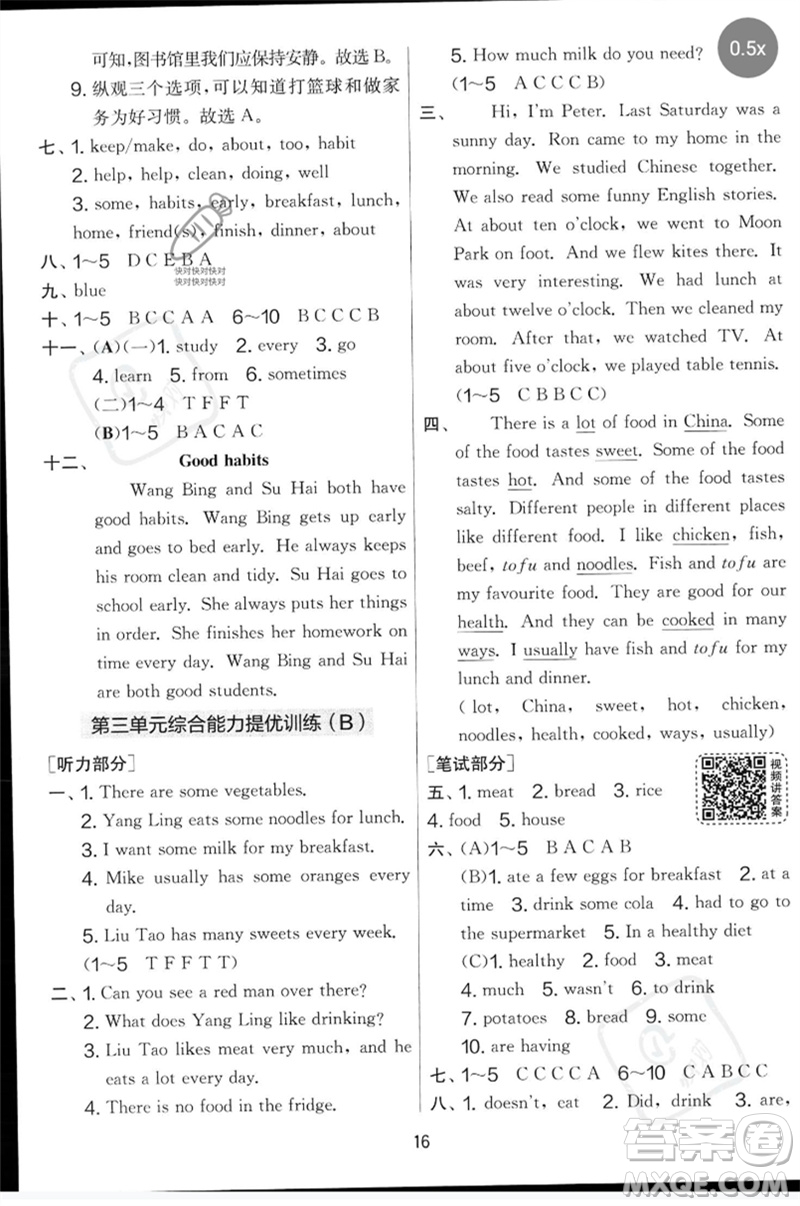 可知,图书馆里我们应保持安静。故选 B。
9. 纵观三个选项,可以知道打篮球和做家
务为好习惯。故选 A。
七、1. keep/make, do, about, too, habit
2. help, help, clean, doing, well
3. some, habits, early, breakfast, lunch,
home, friend(s), finish, dinner, about
八、1~5 D C E B A
快对快对快对
快对快对快对
九、blue
十、1~5 B C C A A 6~10 B C C C B
十一、(A)(一)1. study 2. every 3. go
4. learn 5. from 6. sometimes
(二)1~4 T F F T
(B)1~5 B A C A C
十二、 Good habits
Wang Bing and Su Hai both have
good habits. Wang Bing gets up early
and goes to bed early. He always keeps
his room clean and tidy. Su Hai goes to
school early. She always puts her things
in order. She finishes her homework on
time every day. Wang Bing and Su Hai
are both good students.
第三单元综合能力提优训练(B)
[听力部分]
一、1. There are some vegetables.
2. Yang Ling eats some noodles for lunch.
3. I want some milk for my breakfast.
4. Mike usually has some oranges every
day.
5. Liu Tao has many sweets every week.
(1~5 T F F T T)
二、1. Can you see a red man over there?
2. What does Yang Ling like drinking?
3. Liu Tao likes meat very much, and he
eats a lot every day.
4. There is no food in the fridge.
5. How much milk do you need?
0.5x
(1~5 A C C C B)
三、 Hi, I'm Peter. Last Saturday was a
sunny day. Ron came to my home in the
morning. We studied Chinese together.
We also read some funny English stories.
At about ten o'clock, we went to Moon
Park on foot. And we flew kites there. It
was interesting. We had lunch at
about twelve o'clock. Then we cleaned my
room. After that, we watched TV. At
about five o'clock, we played table tennis.
(1~5 C B B C C)
四、 There is a lot of food in China. Some
of the food tastes sweet. Some of the food
tastes hot. And some of the food tastes
salty. Different people in different places
like different food. I like chicken, fish,
beef, tofu and noodles. Fish and tofu are
my favourite food. They are good for our
health. And they can be cooked in many
ways. I usually have fish and tofu in my
lunch.
(lot, China, sweet, hot, chicken,
noodles, health, cooked, ways, usually)
[笔试部分]
视频讲答案
五、1. meat 2. bread 3. rice
4. food 5. house
六、(A)1~5 B A C A B
(B)1. ate a few eggs for breakfast 2. at a
time 3. drink some cola 4. had to go to
the supermarket 5. In a healthy diet
(C)1. healthy 2. food 3. meat
4. much 5. wasn't 6. to drink
7. potatoes 8. bread 9. some
10. are having
七、1~5 C C C C A 6~10 C A B C C
八、1. doesn't, eat 2. Did, drink 3. are,
16
答案卷
MXQE.COM